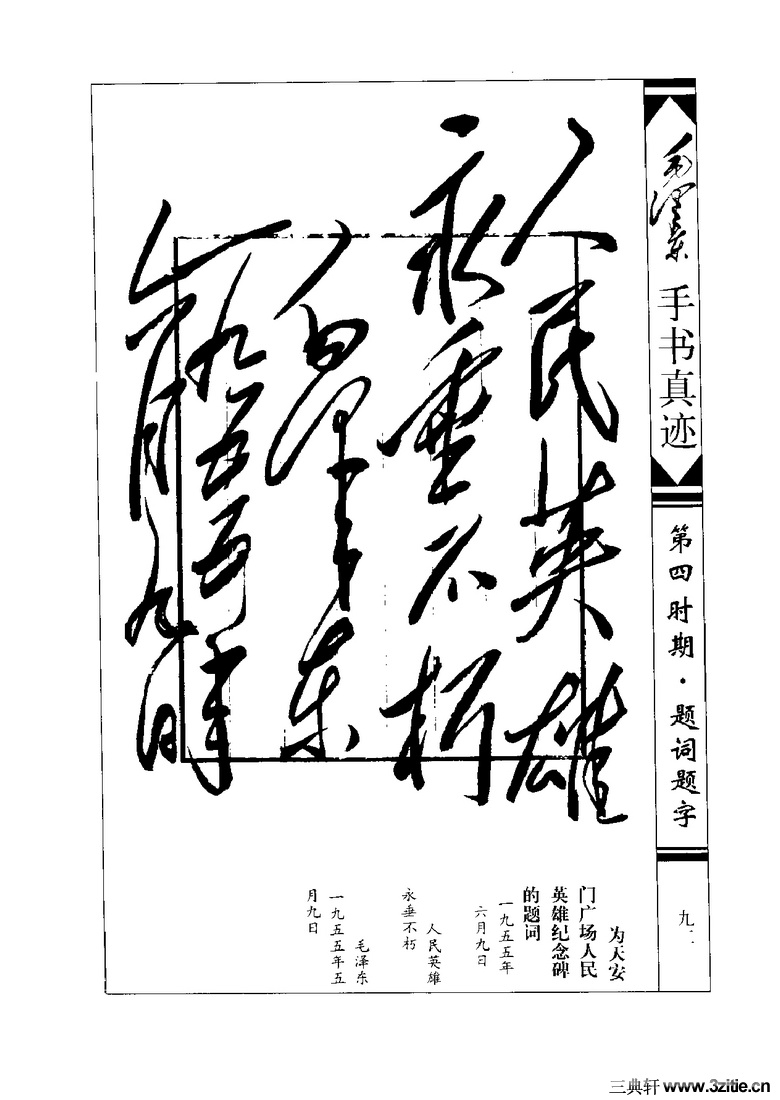 毛泽东
手书真迹
第四时期·题词题字
九
人民英雄
永垂不朽
毛泽东
一九五五年
六月九日
为天安
门广场人民
英雄纪念碑
的题词
一九五五年
六月九日
人民英雄
永垂不朽
毛泽东
一九五五年五
月九日
三典轩 www.3zitie.cn